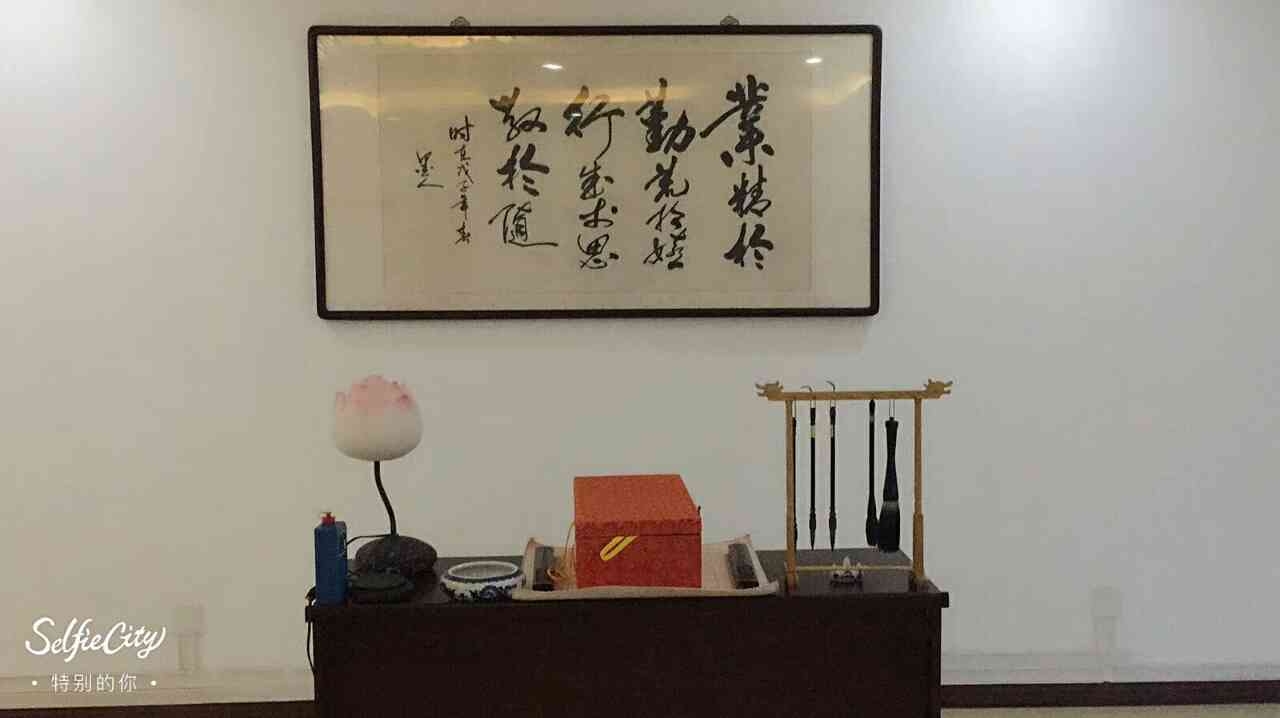 業精於
勤荒於嬉
行成於思
毀於隨
时在戊子年春
SelfieCity
·特别的你·